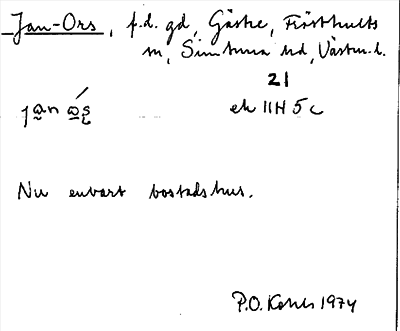 Jan-Ors, f.d. gd, Gäske, Frösthults
sn, Simtuna hd, Västm.l.
21
jan ås
ek 11H 5c
Nu enbart bostadshus.
P.O. 1974